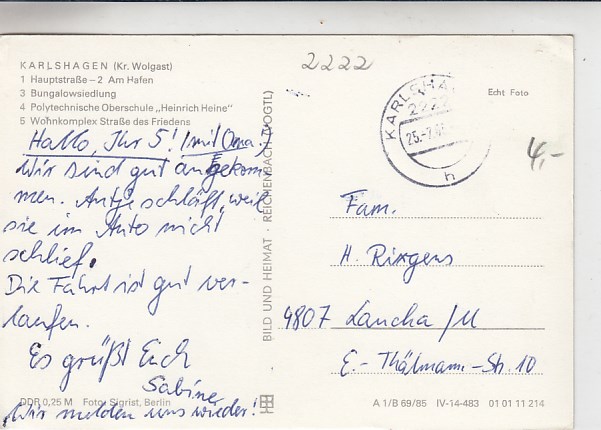 2222
KARLSHAGEN (Kr. Wolgast)
1 Hauptstraße – 2 Am Hafen
3 Bungalowsiedlung
4 Polytechnische Oberschule „Heinrich Heine“
5 Wohnkomplex Straße des Friedens
Hallo, Ihr 5! (mit Oma.)
Wir sind gut angekom-
men. Antje schläft, weil
sie im Auto nicht
schlief.
Die Fahrt ist gut ver-
laufen.
Es grüßt Euch
Sabine
Wir melden uns wieder!
DDR 0,25 M Foto: Sigrist, Berlin
BILD UND HEIMAT · REICHENBACH (VOGTL)
KARLSHA
2222
25.-7.
h
Echt Foto
4,-
Fam.
H. Rixgens
4807 Laucha / U
E.-Thälmann-Str. 10
A 1/B 69/85 IV-14-483 01 01 11 214